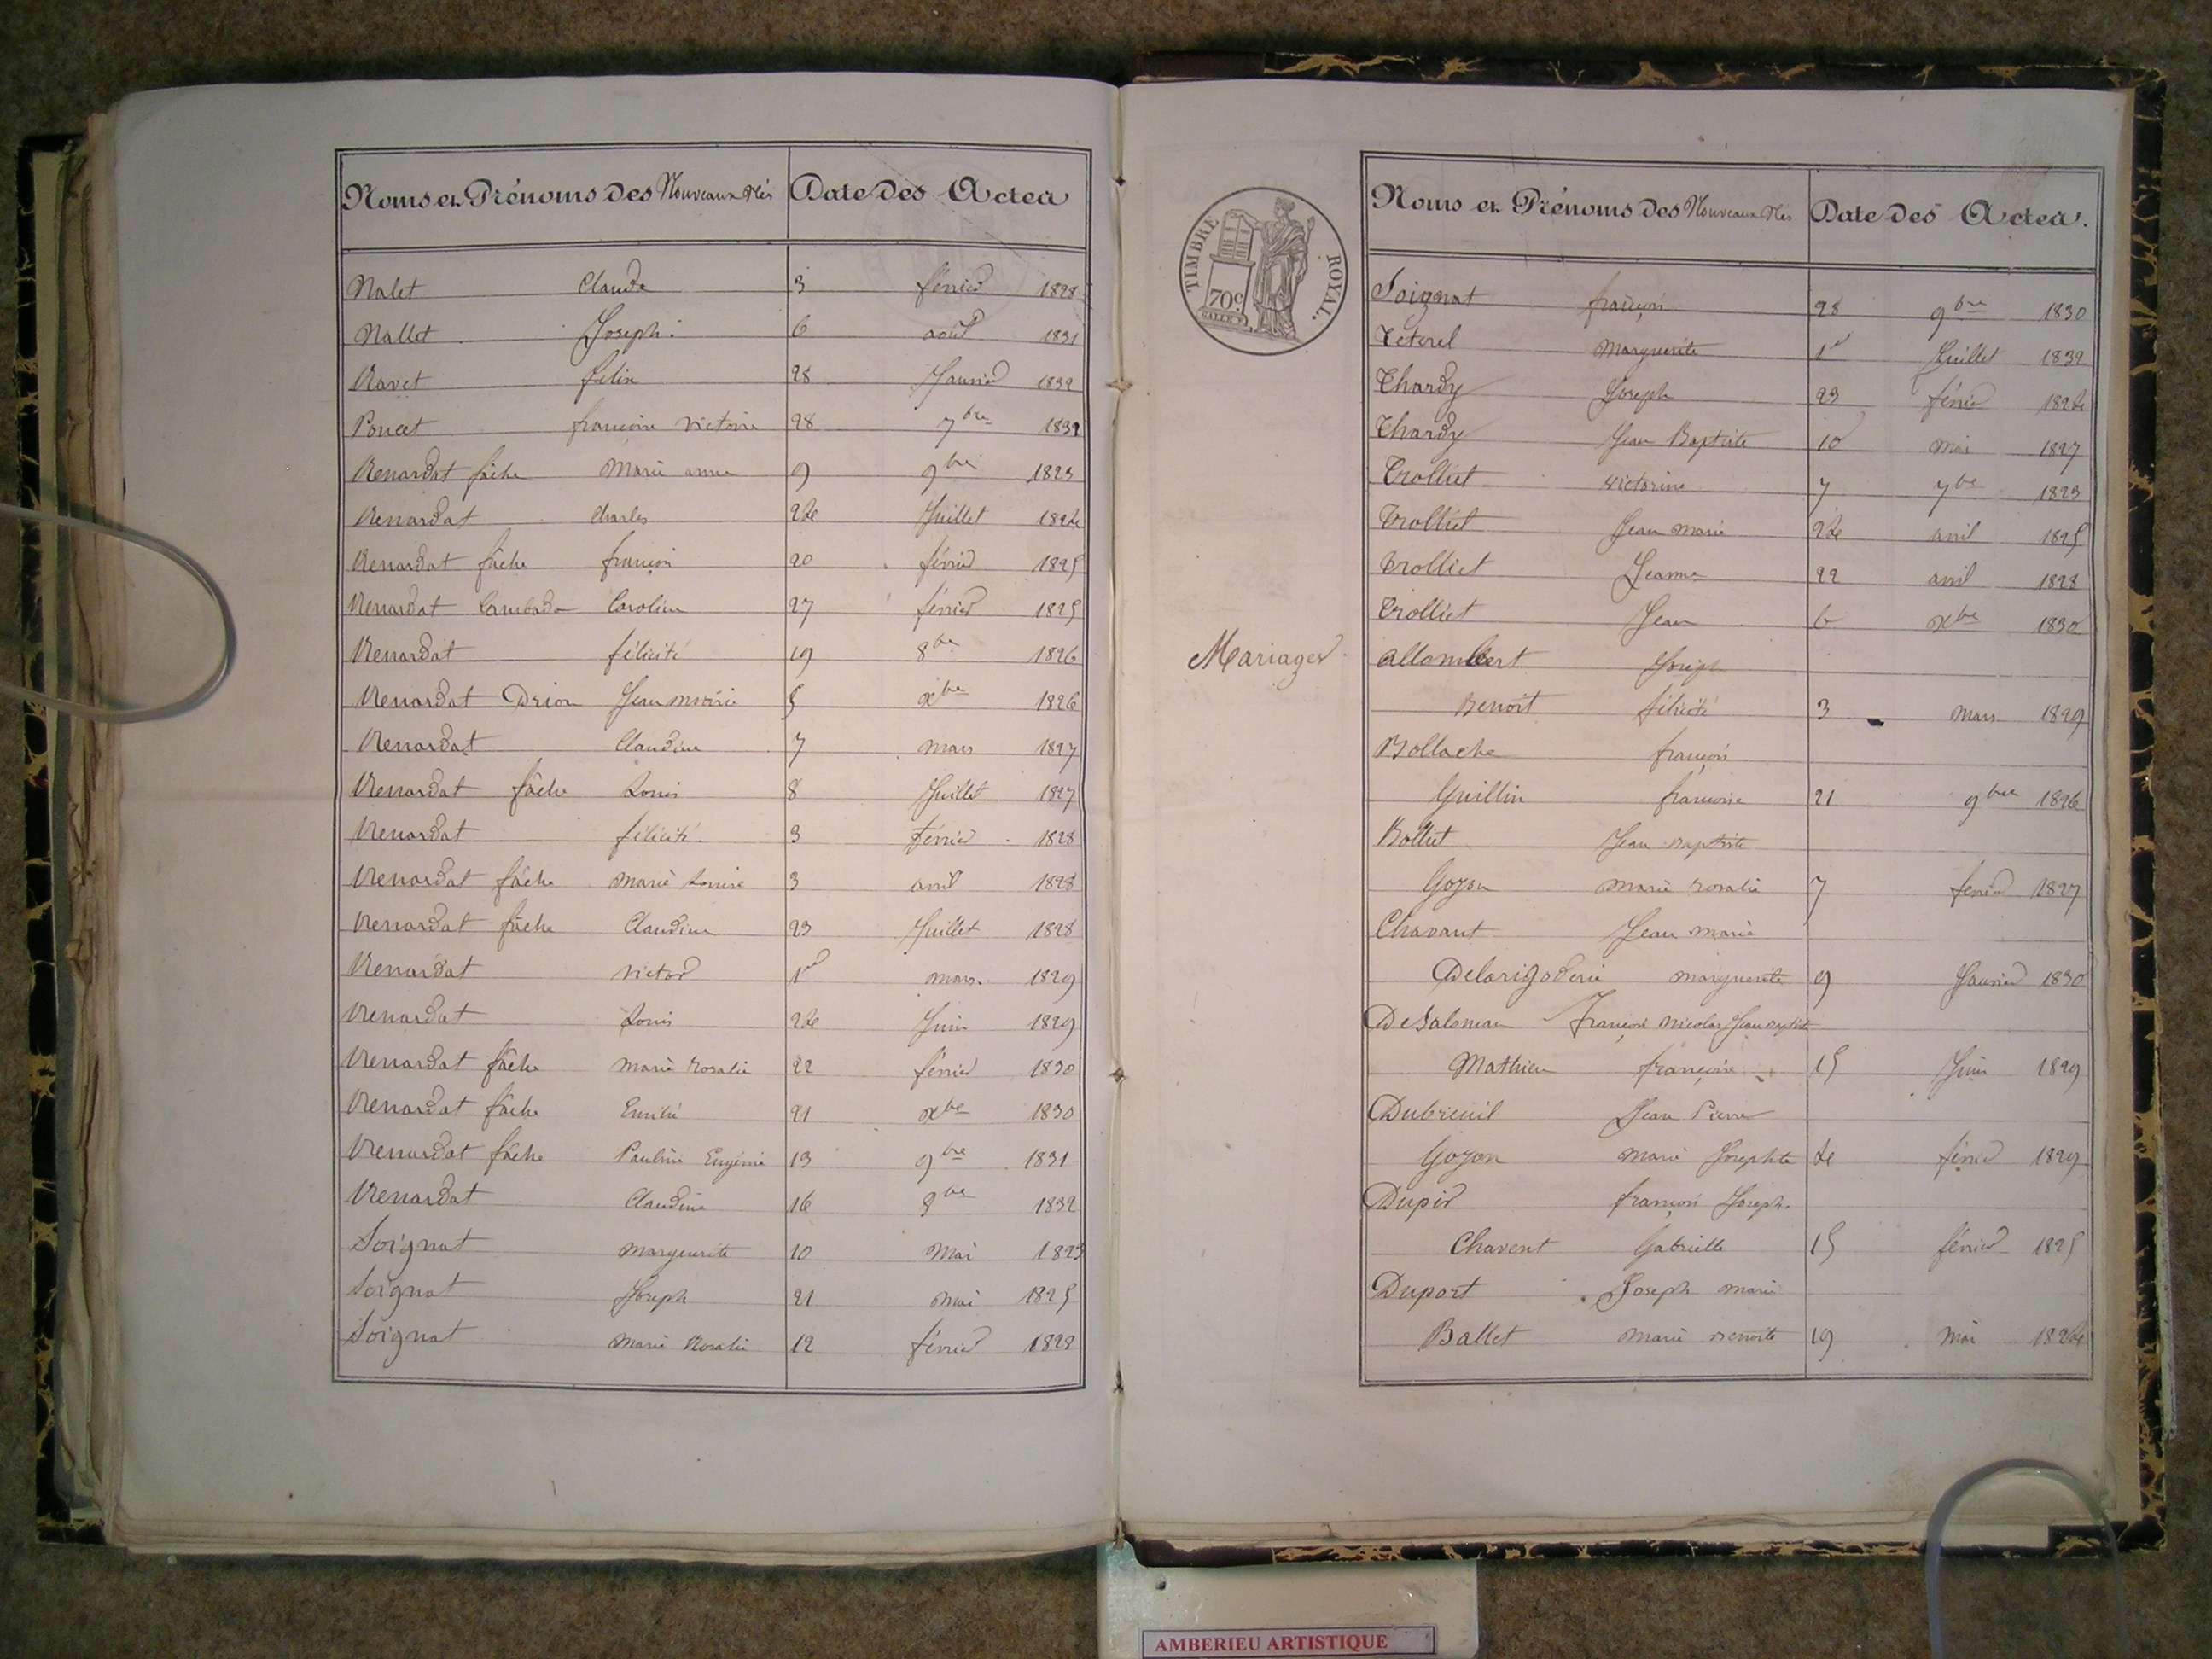 Noms et Prénoms des Nouveaux Nés Date des Actes
Nalet Claude 3 février 1828
Nallet Joseph 6 août 1831
Ravet félix 28 Janvier 1832
Poncet francoise Victoire 28 7bre 1832
Renardat fâche Marie anne 9 9bre 1823
Renardat Charles 24 Juillet 1824
Renardat fâche françois 20 février 1825
Renardat Cambada Caroline 27 février 1825
Renardat félicité 19 8bre 1826
Renardat Drion Jean marie 5 xbre 1826
Renardat Claudine 7 mars 1827
Renardat fâche Louis 8 Juillet 1827
Renardat félicité 3 février 1828
Renardat fâche marie Louise 3 avril 1828
Renardat fâche Claudine 23 Juillet 1828
Renardat victor 1er mars 1829
Renardat Louis 24 Juin 1829
Renardat fâche marie rosalie 22 février 1830
Renardat fâche Emilie 21 xbre 1830
Renardat fâche Pauline Eugénie 13 9bre 1831
Renardat Claudine 16 8bre 1832
Soignat marguerite 10 mai 1823
Soignat Joseph 21 mai 1825
Soignat marie Rosalie 12 février 1828
TIMBRE ROYAL.
70c
Noms et Prénoms des Nouveaux Nés Date des Actes.
Soignat françois 28 9bre 1830
Teterel marguerite 1er Juillet 1832
Thardy Joseph 23 février 1824
Thardy Jean Baptiste 10 mai 1827
Trolliet victorine 7 7bre 1823
Trolliet Jean marie 24 avril 1825
Trolliet Jeanne 22 avril 1828
Trolliet Jean 6 xbre 1830
Mariages
allombert Joseph
Benoît félicité 3 mars 1829
Bollache françois
Guillin francoise 21 9bre 1826
Bolliet Jean baptiste
Goyon marie rosalie 7 février 1827
Chavant Jean marie
Delarigoderie marguerite 9 Janvier 1830
François nicolas Jean baptiste
Mathieu francoise 15 Juin 1829
Dubreuil Jean Pierre
Goyon marie Josephte 4 février 1829
Dupir françois Joseph
Chavent Gabrielle 15 février 1825
Duport Joseph marie
Ballet marie benoite 19 mai 1824
AMBERIEU ARTISTIQUE